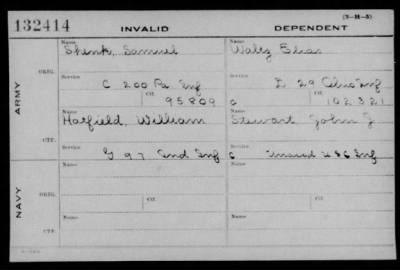 132414 INVALID DEPENDENT (3-H-5)
Name Name
Shenk, Samuel Waltz Elias
ORIG. Service Service
C 200 Pa Inf I 29 Ohio Inf
Ctf. Ctf.
95809 C 102321
ARMY
Name Name
Hatfield, William Stewart John J
CTF. Service Service
G 97 Ind Inf C U S C Inf
Name Name
ORIG. Service Ctf. Service Ctf.
NAVY
Name Name
CTF.